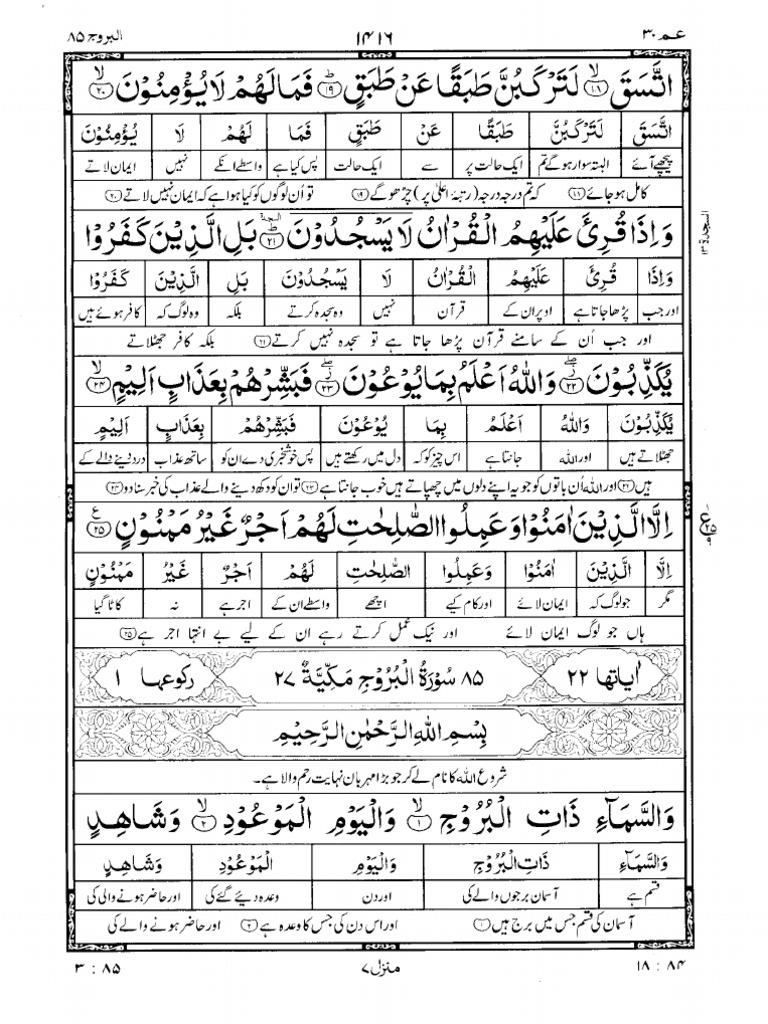 عـم ۳۰ ۱۴۱۶ البروج ۸۵
اتَّسَقَ ﴿۱۸﴾ۙ لَتَرْكَبُنَّ طَبَقًا عَنْ طَبَقٍ ﴿۱۹﴾ؕ فَمَا لَهُمْ لَا يُؤْمِنُوْنَ ﴿۲۰﴾ۙ
اتَّسَقَ لَتَرْكَبُنَّ طَبَقًا عَنْ طَبَقٍ فَمَا لَهُمْ لَا يُؤْمِنُوْنَ
پیچھے آئے البتہ سوار ہوگے تم ایک حالت پر سے ایک حالت پس کیا ہے واسطے انکے نہیں ایمان لاتے
کامل ہو جائے ﴿۱۸﴾ کہ تم درجہ درجہ (رتبۂ اعلیٰ پر) چڑھو گے ﴿۱۹﴾ تو اُن لوگوں کو کیا ہوا ہے کہ ایمان نہیں لاتے ﴿۲۰﴾
وَاِذَا قُرِئَ عَلَيْهِمُ الْقُرْاٰنُ لَا يَسْجُدُوْنَ ﴿۲۱﴾ؕ بَلِ الَّذِيْنَ كَفَرُوْا
السجدة ۱۳
وَاِذَا قُرِئَ عَلَيْهِمُ الْقُرْاٰنُ لَا يَسْجُدُوْنَ بَلِ الَّذِيْنَ كَفَرُوْا
اور جب پڑھا جاتا ہے اوپر ان کے قرآن نہیں وہ سجدہ کرتے بلکہ وہ لوگ کہ کافر ہوئے ہیں
اور جب اُن کے سامنے قرآن پڑھا جاتا ہے تو سجدہ نہیں کرتے ﴿۲۱﴾ بلکہ کافر جھٹلاتے
يُكَذِّبُوْنَ ﴿۲۲﴾ۖ وَاللّٰهُ اَعْلَمُ بِمَا يُوْعُوْنَ ﴿۲۳﴾ۖ فَبَشِّرْهُمْ بِعَذَابٍ اَلِيْمٍ ﴿۲۴﴾ۙ
يُكَذِّبُوْنَ وَاللّٰهُ اَعْلَمُ بِمَا يُوْعُوْنَ فَبَشِّرْهُمْ بِعَذَابٍ اَلِيْمٍ
جھٹلاتے ہیں اور اللہ جانتا ہے اس چیز کو کہ دل میں رکھتے ہیں پس خوشخبری دے ان کو ساتھ عذاب درد دینے والے کے
ہیں ﴿۲۲﴾ اور اللہ اُن باتوں کو جو یہ اپنے دلوں میں چھپاتے ہیں خوب جانتا ہے ﴿۲۳﴾ تو ان کو دکھ دینے والے عذاب کی خبر سنا دو ﴿۲۴﴾
اِلَّا الَّذِيْنَ اٰمَنُوْا وَعَمِلُوا الصّٰلِحٰتِ لَهُمْ اَجْرٌ غَيْرُ مَمْنُوْنٍ ﴿۲۵﴾
اِلَّا الَّذِيْنَ اٰمَنُوْا وَعَمِلُوا الصّٰلِحٰتِ لَهُمْ اَجْرٌ غَيْرُ مَمْنُوْنٍ
مگر جو لوگ کہ ایمان لائے اور کام کیے اچھے واسطے ان کے اجر ہے نہ کاٹا گیا
ہاں جو لوگ ایمان لائے اور نیک عمل کرتے رہے ان کے لیے بے انتہا اجر ہے ﴿۲۵﴾
اٰیاتها ۲۲ ۸۵ سُوْرَةُ الْبُرُوْجِ مَكِّيَّةٌ ۲۷ رکوعها ۱
بِسْمِ اللّٰهِ الرَّحْمٰنِ الرَّحِيْمِ
شروع اللہ کا نام لے کر جو بڑا مہربان نہایت رحم والا ہے۔
وَالسَّمَآءِ ذَاتِ الْبُرُوْجِ ﴿۱﴾ۙ وَالْيَوْمِ الْمَوْعُوْدِ ﴿۲﴾ۙ وَشَاهِدٍ
وَالسَّمَآءِ ذَاتِ الْبُرُوْجِ وَالْيَوْمِ الْمَوْعُوْدِ وَشَاهِدٍ
قسم ہے آسمان برجوں والے کی اور دن وعدہ دیئے گئے کی اور حاضر ہونے والی کی
آسمان کی قسم جس میں برج ہیں ﴿۱﴾ اور اس دن کی جس کا وعدہ ہے ﴿۲﴾ اور حاضر ہونے والے کی
۱۸ : ۸۴ منزل ۷ ۳ : ۸۵